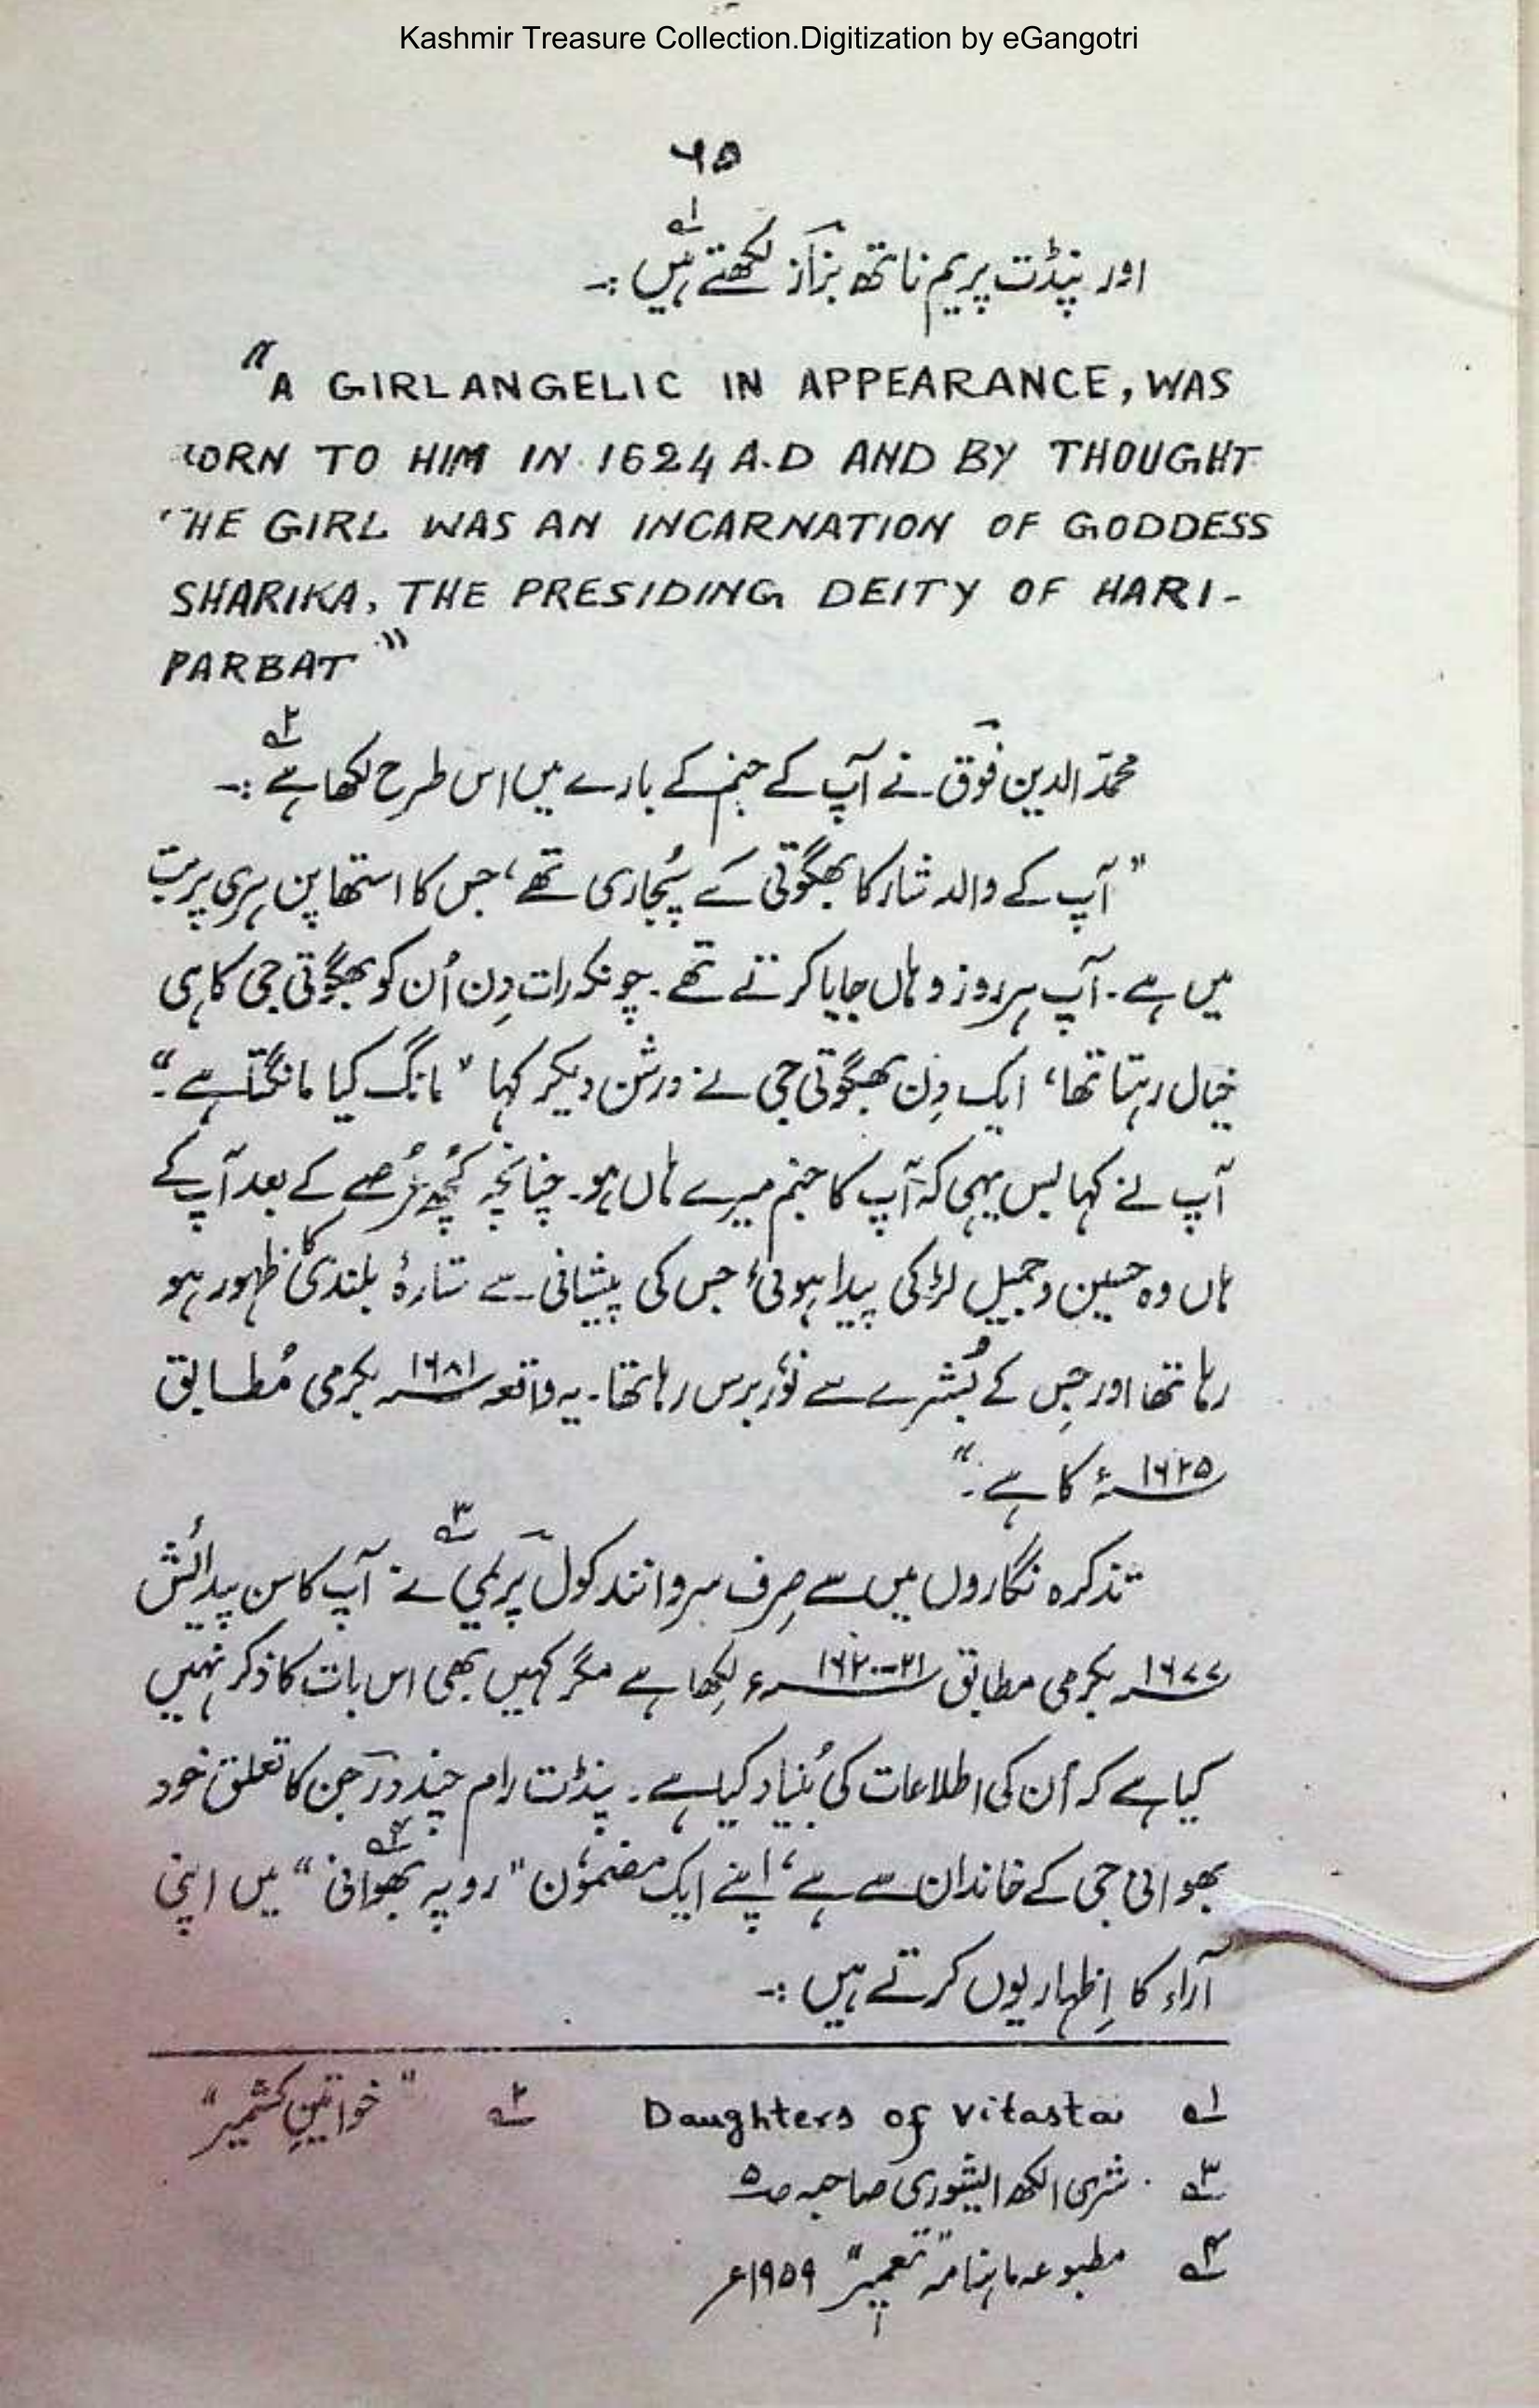 Kashmir Treasure Collection.Digitization by eGangotri
۶۵
اور پنڈت پریم ناتھ بزاز لکھتے ہیں ؎۱ :۔
"A GIRL ANGELIC IN APPEARANCE, WAS
BORN TO HIM IN 1624 A.D AND BY THOUGHT
THE GIRL WAS AN INCARNATION OF GODDESS
SHARIKA, THE PRESIDING DEITY OF HARI-
PARBAT"
محمد الدین فوق نے آپ کے جنم کے بارے میں اس طرح لکھا ہے ؎۲ :۔
"آپ کے والد شارکا بھگوتی کے پُجاری تھے، جس کا استھاپن ہری پربت
میں ہے۔ آپ ہر روز وہاں جایا کرتے تھے۔ چونکہ رات دِن اُن کو بھگوتی جی کا ہی
خیال رہتا تھا، ایک دِن بھگوتی جی نے درشن دیکر کہا "مانگ کیا مانگتا ہے۔"
آپ نے کہا بس یہی کہ آپ کا جنم میرے ہاں ہو۔ چنانچہ کُچھ عُرصے کے بعد آپ کے
ہاں وہ حسین و جمیل لڑکی پیدا ہوئی، جس کی پیشانی سے ستارۂ بلندی کا ظہور ہو
رہا تھا اور جِس کے بُشرے سے نُور برس رہا تھا۔ یہ واقعہ ۱۶۸۱ بکرمی مُطابق
۱۶۲۵ء کا ہے۔"
تذکرہ نگاروں میں سے صِرف سروانند کول پریمی ؎۳ نے آپ کا سن پیدائش
۱۶۷۷ بکرمی مطابق ۲۱-۱۶۲۰ء لِکھا ہے مگر کہیں بھی اس بات کا ذکر نہیں
کیا ہے کہ اُن کی اطلاعات کی بُنیاد کیا ہے۔ پنڈت رام چندر در جن کا تعلق خود
بھوانی جی کے خاندان سے ہے، اپنے ایک مضمُون "روپہ بھوانی" ؎۴ میں اپنی
آراء کا اِظہار یوں کرتے ہیں :۔
؎۱ Daughters of Vitasta ؎۲ "خواتینِ کشمیر"
؎۳ شری الکھ ایشوری صاحبہ صہ ۵
؎۴ مطبوعہ ماہنامہ "تعمیر" ۱۹۵۹ء